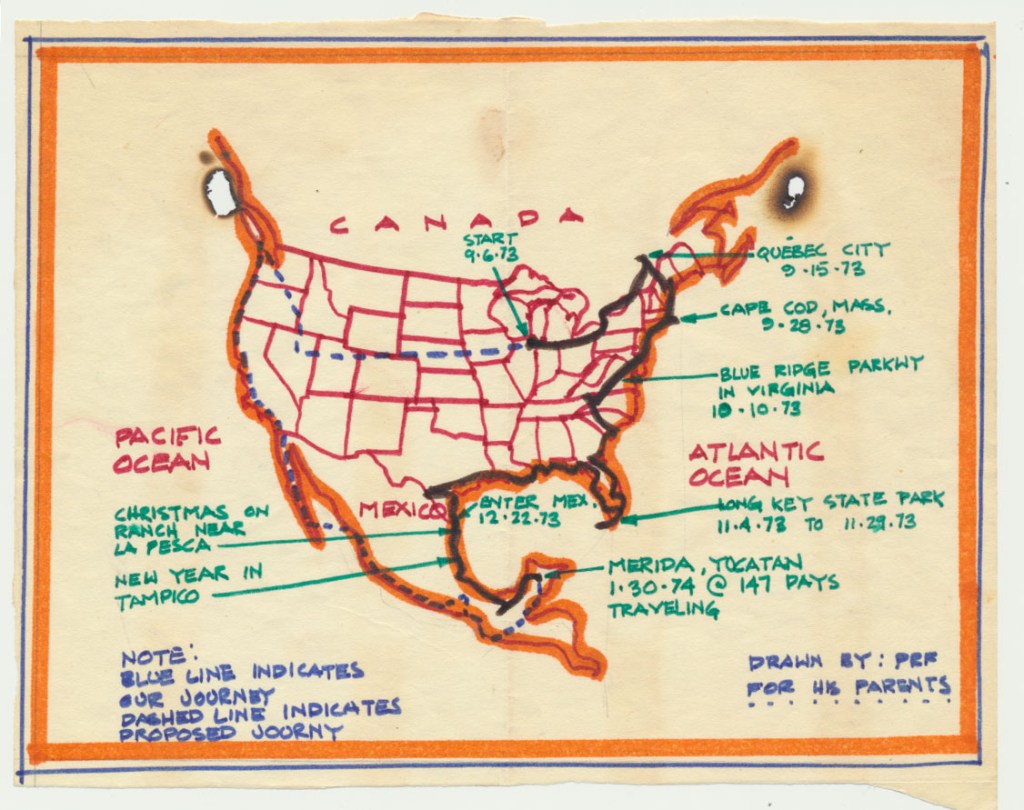 CANADA
START
9·6·73
QUEBEC CITY
9·15·73
CAPE COD, MASS.
9·28·73
BLUE RIDGE PARKWY
IN VIRGINIA
10·10·73
PACIFIC
OCEAN
ATLANTIC
OCEAN
MEXICO
ENTER MEX.
12·22·73
LONG KEY STATE PARK
11·4·73 TO 11·29·73
CHRISTMAS ON
RANCH NEAR
LA PESCA
NEW YEAR IN
TAMPICO
MERIDA, YUCATAN
1·30·74 @ 147 DAYS
TRAVELING
NOTE:
BLUE LINE INDICATES
OUR JOURNEY
DASHED LINE INDICATES
PROPOSED JOORNY
DRAWN BY: PRF
FOR HIS PARENTS